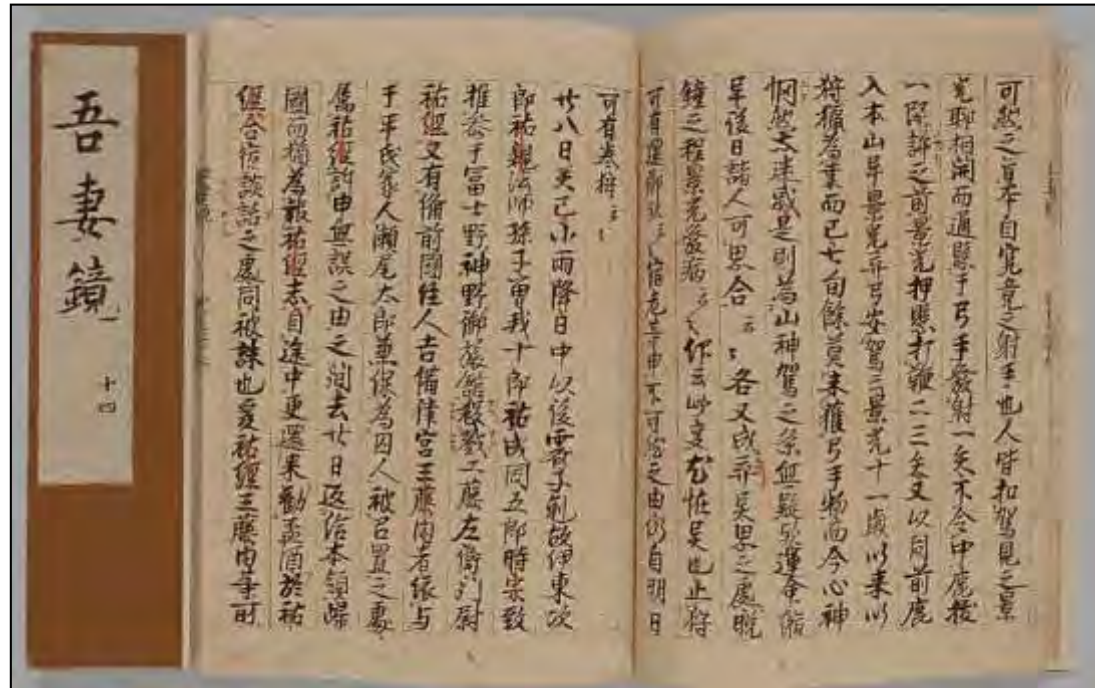 可然之旨本自究竟之射手也人皆扣駕見之景
光聊相開而通懸于弓手發射一矢不令中鹿拔
一段許之前景光押懸打鞭二三矢又以同前鹿
入本山畢景光弃弓安駕云景光十一歳以来以
狩獵為業而已七旬餘莫未獲弓手物而今心神
惘然太迷惑是則為山神駕之条無疑歟運命縮
畢後日諸人可思合云々各又成奇異思之處晩
鐘之程景光發病云々仰云此事尤恠異也止狩
可有還御歟云々宿老等申不可然之由仍自明日
可有巻狩云々
廿八日癸巳小雨降日中以後霽子剋故伊東次
郎祐親法師孫子曽我十郎祐成同五郎時宗致
推参于富士野神野御旅舘殺戮工藤左衛門尉
祐經又有備前國住人吉備津宮王藤内者依与
于平氏家人瀬尾太郎兼保為囚人被召置之處
属祐經訴申無誤之由之間去廿日返給本領歸
國而猶為報祐經志自途中更還来勸盃酒於祐
經合宿談話之處同被誅也爰祐經王藤内等所
吾妻鏡 十四